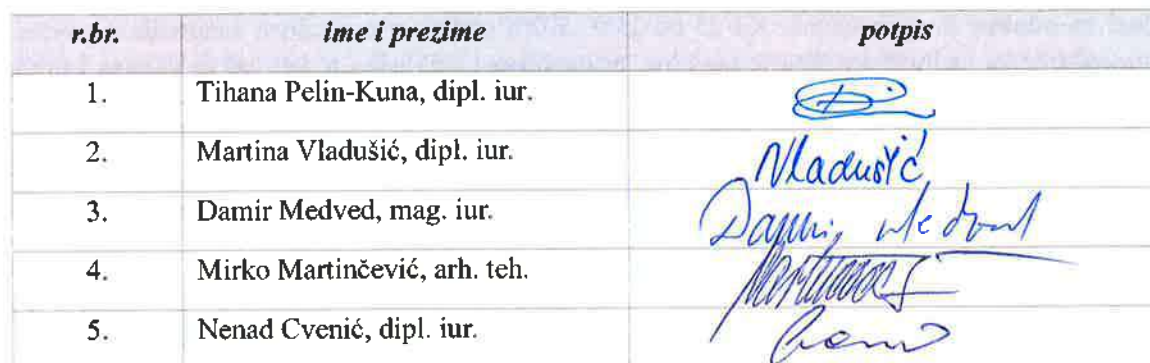 r.br. ime i prezime potpis
1. Tihana Pelin-Kuna, dipl. iur.
2. Martina Vladušić, dipl. iur. Vladušić
3. Damir Medved, mag. iur. Damir Medved
4. Mirko Martinčević, arh. teh.
5. Nenad Cvenić, dipl. iur.